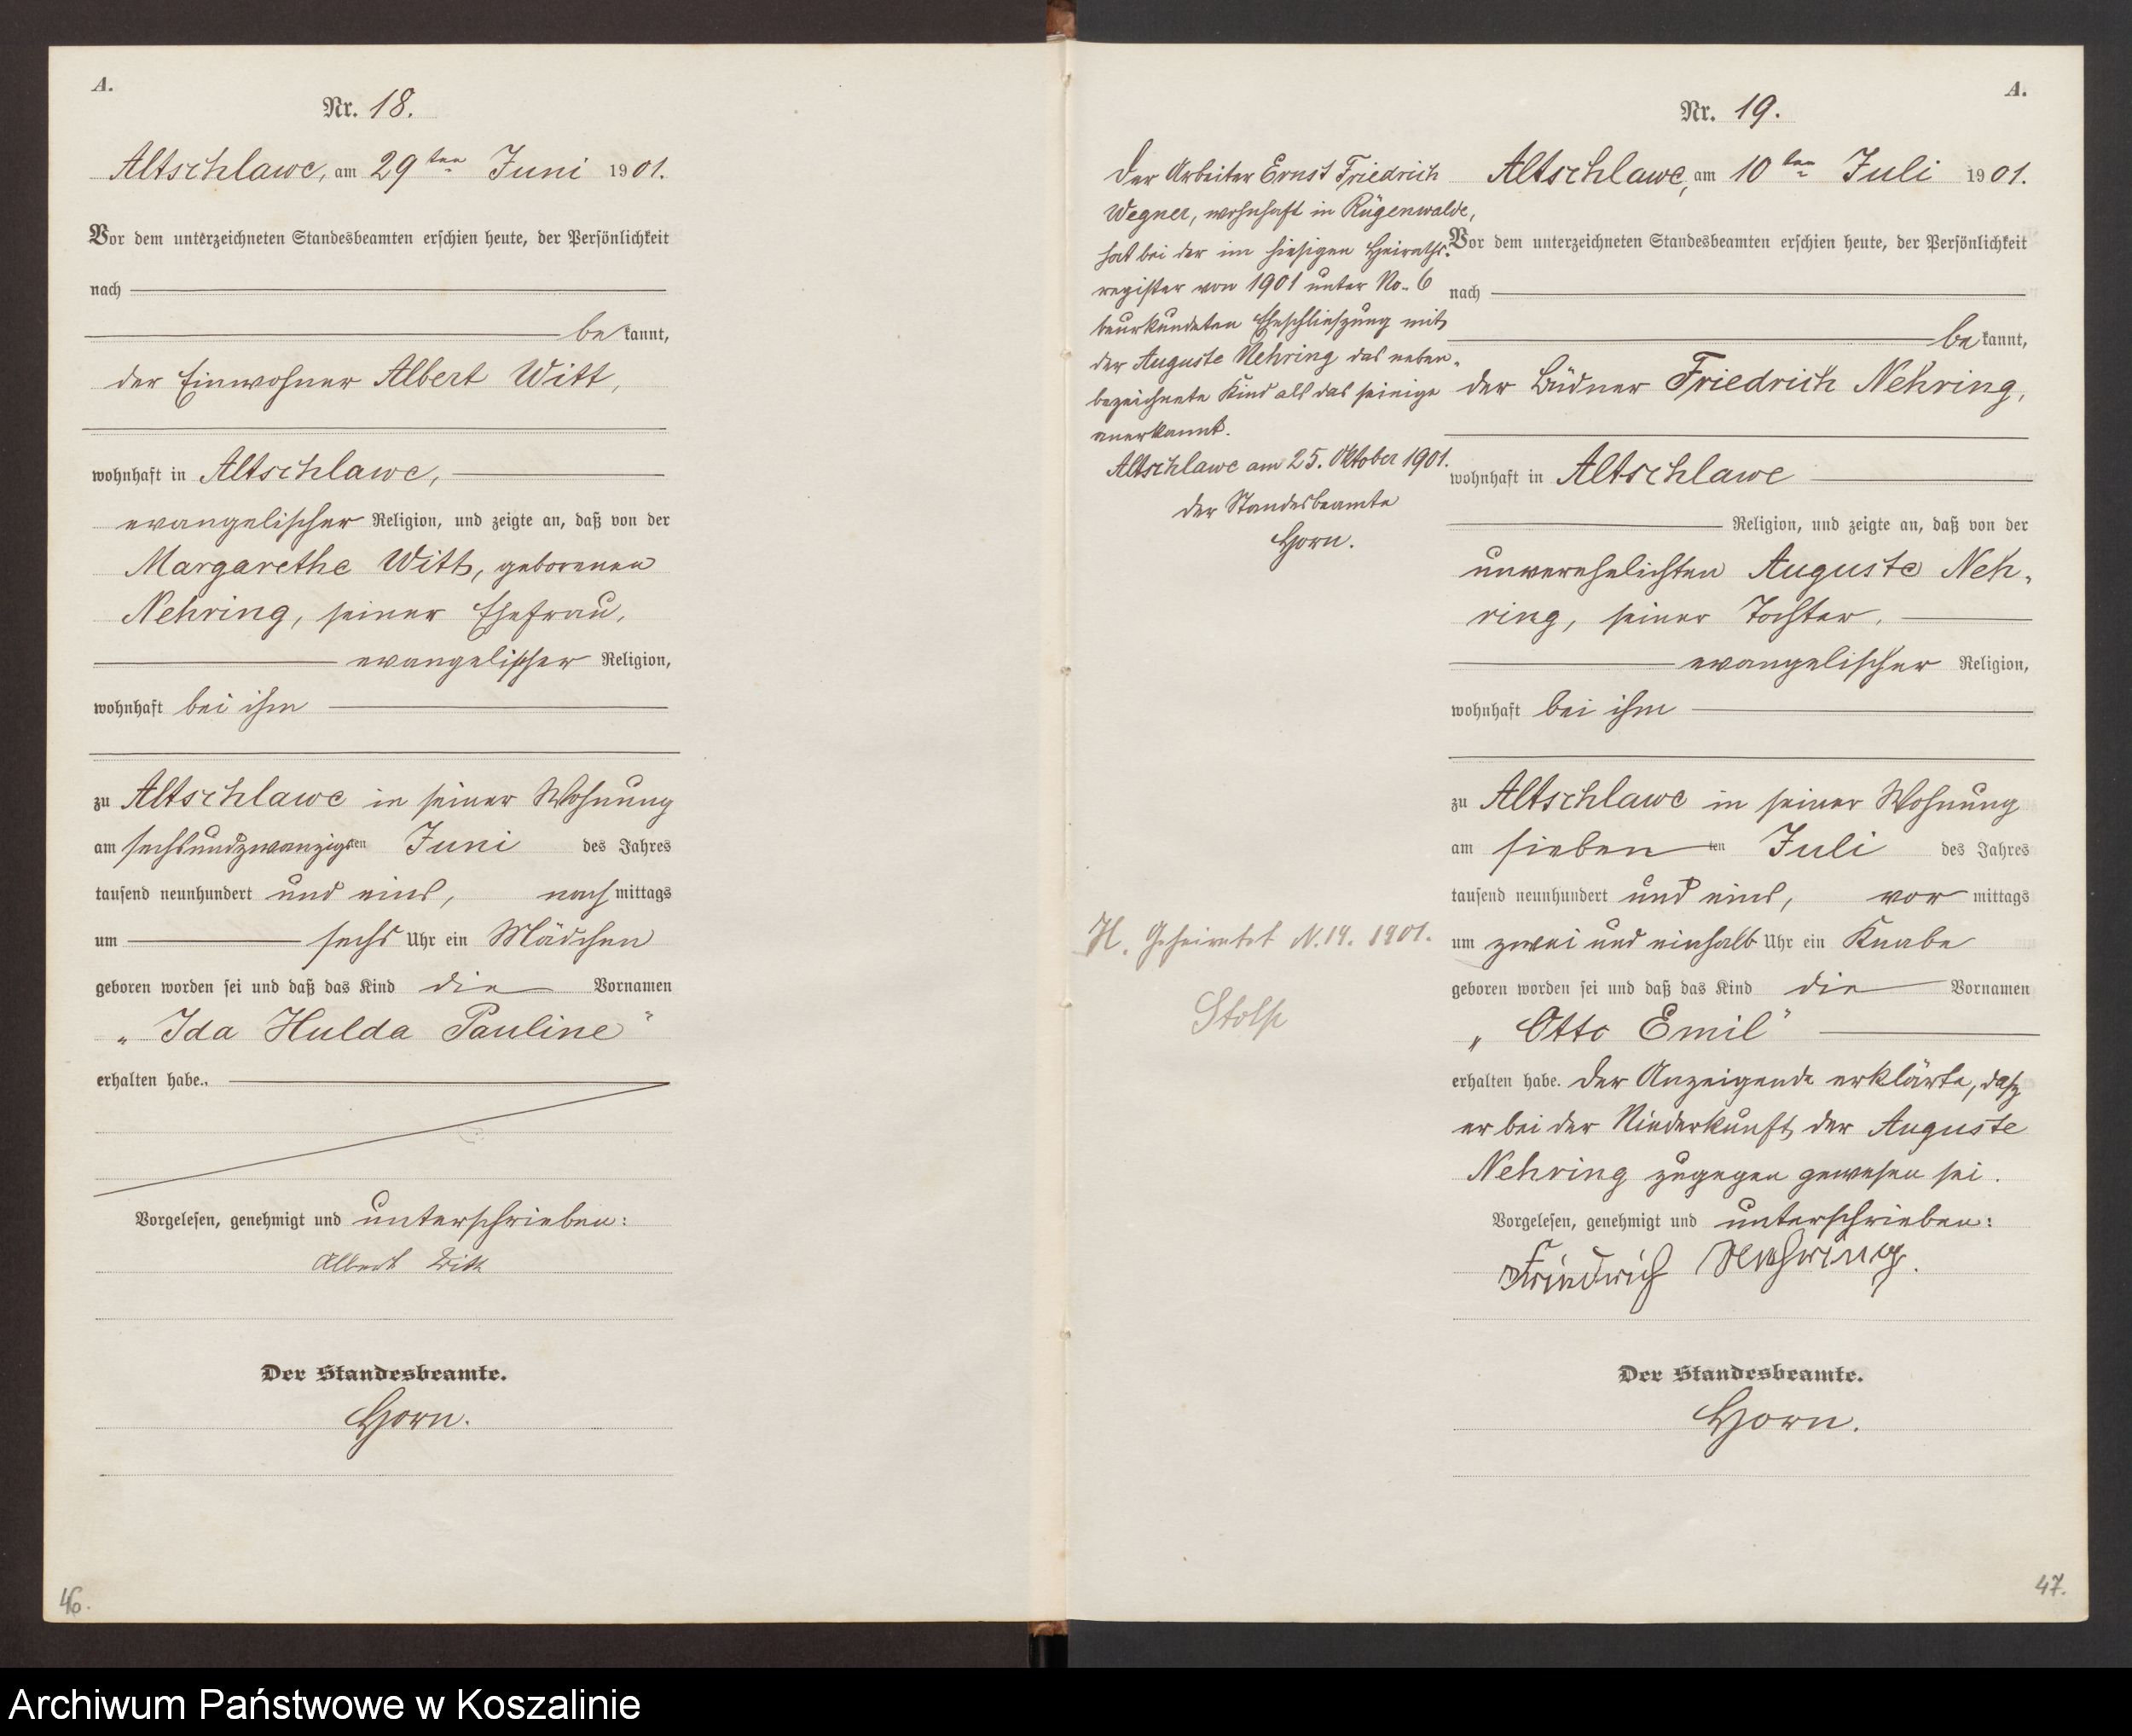 A.
Nr. 18.
Altschlawe, am 29ten Juni 1901.
Vor dem unterzeichneten Standesbeamten erschien heute, der Persönlichkeit
nach
be kannt,
der Einwohner Albert Witt,
wohnhaft in Altschlawe,
evangelischer Religion, und zeigte an, daß von der
Margarethe Witt, geborenen
Nehring, seiner Ehefrau,
evangelischer Religion,
wohnhaft bei ihm
zu Altschlawe in seiner Wohnung
am sechsundzwanzigsten Juni des Jahres
tausend neunhundert und eins, nach mittags
um sechs Uhr ein Mädchen
geboren worden sei und daß das Kind die Vornamen
„Ida Hulda Pauline"
erhalten habe.
Vorgelesen, genehmigt und unterschrieben:
Albert Witt
Der Standesbeamte.
Horn.
46.
A.
Nr. 19.
Der Arbeiter Ernst Friedrich
Wegner, wohnhaft in Rügenwalde,
hat bei der im hiesigen Heiraths-
register von 1901 unter No. 6
beurkundeten Eheschließung mit
der Auguste Nehring das neben-
bezeichnete Kind als das seinige
anerkannt.
Altschlawe am 25. Oktober 1901.
Der Standesbeamte
Horn.
H. Geheiratet N. 19. 1901.
Stolp
Altschlawe, am 10ten Juli 1901.
Vor dem unterzeichneten Standesbeamten erschien heute, der Persönlichkeit
nach
be kannt,
der Büdner Friedrich Nehring,
wohnhaft in Altschlawe
Religion, und zeigte an, daß von der
unverehelichten Auguste Neh-
ring, seiner Tochter,
evangelischer Religion,
wohnhaft bei ihm
zu Altschlawe in seiner Wohnung
am sieben ten Juli des Jahres
tausend neunhundert und eins, vor mittags
um zwei und einhalb Uhr ein Knabe
geboren worden sei und daß das Kind die Vornamen
„Otto Emil"
erhalten habe. Der Anzeigende erklärte, daß
er bei der Niederkunft der Auguste
Nehring zugegen gewesen sei.
Vorgelesen, genehmigt und unterschrieben:
Friedrich Nehring.
Der Standesbeamte.
Horn.
47.
Archiwum Państwowe w Koszalinie